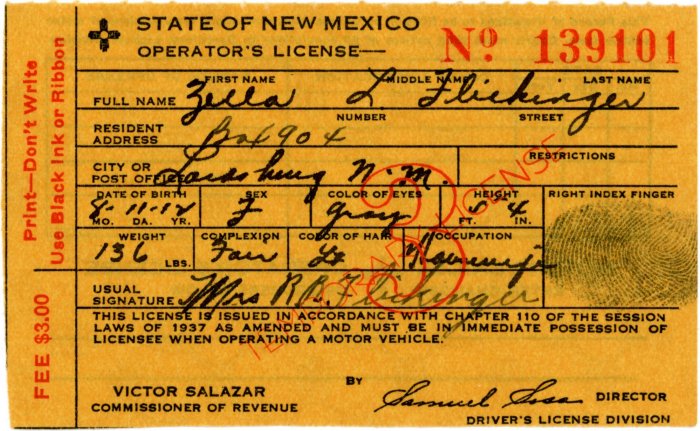 STATE OF NEW MEXICO
OPERATOR'S LICENSE—
No 139101
FIRST NAME MIDDLE NAME LAST NAME
FULL NAME Zella L. Flickinger
NUMBER STREET
RESIDENT ADDRESS Box 904
CITY OR POST OFFICE Lordsburg N.M.
RESTRICTIONS
DATE OF BIRTH SEX COLOR OF EYES HEIGHT RIGHT INDEX FINGER
8-11-12 F gray 5 4
MO. DA. YR. FT. IN.
WEIGHT COMPLEXION COLOR OF HAIR OCCUPATION
136 LBS. Fair Lt Housewife
USUAL SIGNATURE Mrs R.R. Flickinger
THIS LICENSE IS ISSUED IN ACCORDANCE WITH CHAPTER 110 OF THE SESSION
LAWS OF 1937 AS AMENDED AND MUST BE IN IMMEDIATE POSSESSION OF
LICENSEE WHEN OPERATING A MOTOR VEHICLE.
VICTOR SALAZAR
COMMISSIONER OF REVENUE
BY Samuel Sosa DIRECTOR
DRIVER'S LICENSE DIVISION
Print—Don't Write
Use Black Ink or Ribbon
FEE $3.00
3
TEMPORARY LICENSE